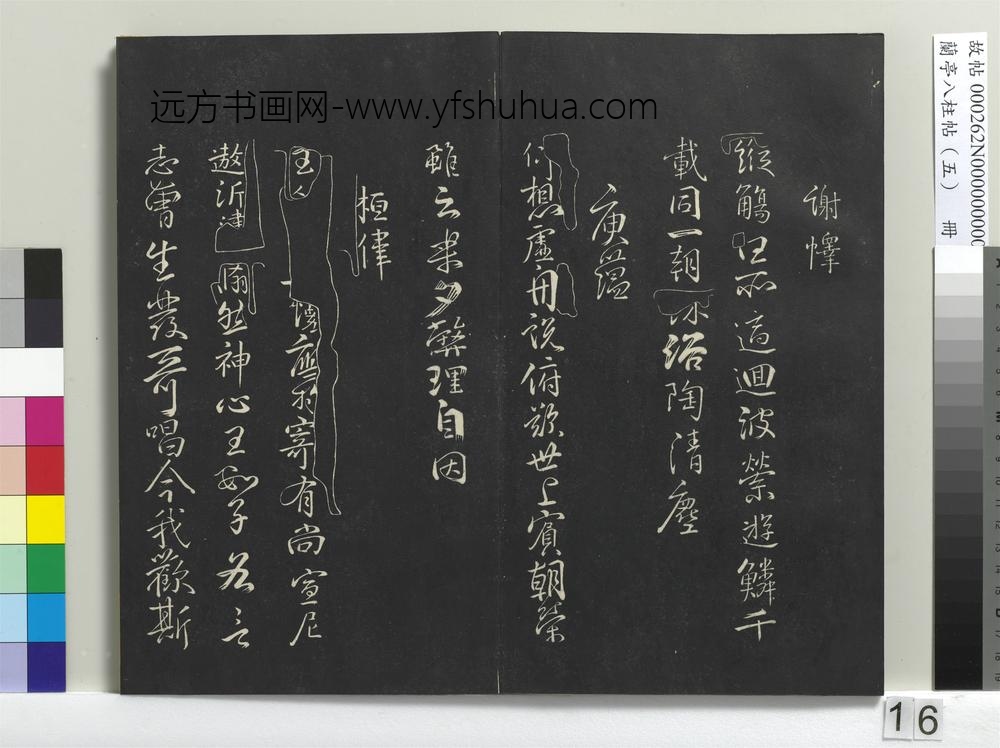 远方书画网-www.yfshuhua.com
故帖 000262N000000000
蘭亭八柱帖（五） 冊
謝懌
縱觴任所適迴波縈遊鱗千
載同一朝沐浴陶清塵
庾蘊
仰想虛舟說俯歎世上賓朝榮
雖云樂夕斃理自因
桓偉
主人 懷應物寄有尚宣尼
遨沂津翛然神心王數子各言
志曾生發奇唱今我歡斯
16